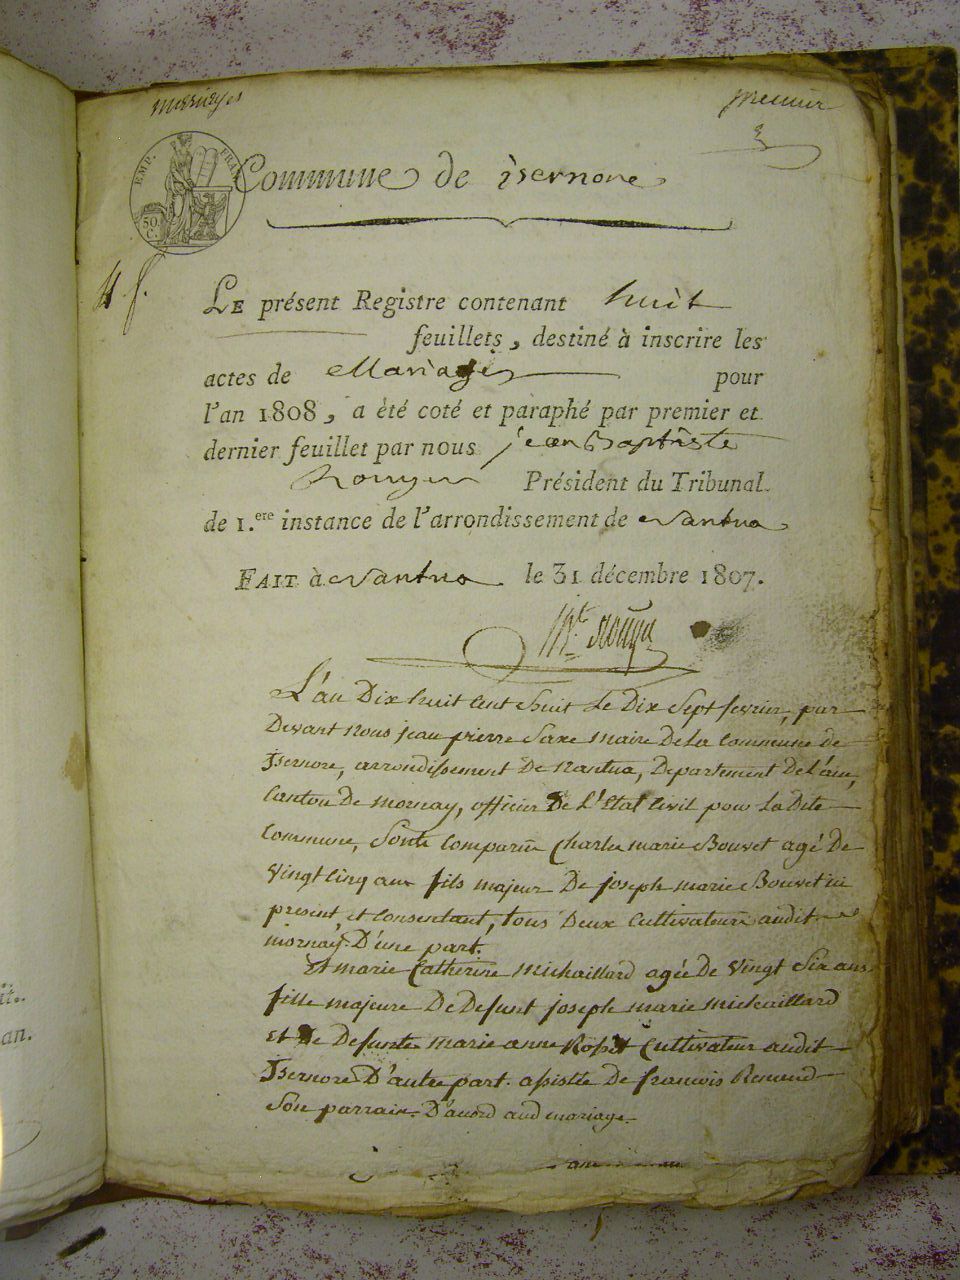 mariages
premier
EMP. FRAN.
50. C.
Commune de isernore
LE présent Registre contenant huit
feuillets, destiné à inscrire les
actes de Mariages pour
l'an 1808, a été coté et paraphé par premier et
dernier feuillet par nous jean Baptiste
Rouyer Président du Tribunal
de 1.ere instance de l'arrondissement de Nantua
FAIT à Nantua le 31 décembre 1807.
L'an Dix huit Cent huit Le Dix Sept fevrier, par
Devant nous jean pierre Saxe maire De La Commune de
Isernore, arrondissement De Nantua, Departement De L'ain,
Canton De mornay, officier De L'Etat Civil pour La Dite
Commune, Sont Comparus Charles marie Bouvet agé De
Vingt Cinq ans fils majeur De joseph marie Bouvet ici
present, et Consentant, tous Deux Cultivateurs audit
mornay D'une part.
Et marie Catherine Michaillard agée De Vingt Six ans
fille majeure De Defunt joseph marie Michaillard
Et De Defunte marie anne Cultivateur audit
Isernore D'autre part. assistée De francois Renaud
Son parrain D'acord aud mariage
it.
an.